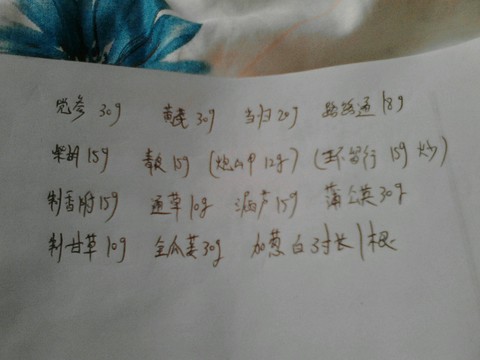 党参 30g 黄芪 30g 当归 20g 路路通 18g
柴胡 15g 青皮 15g (炮山甲 12g) (王不留行 15g 炒)
制香附 15g 通草 10g 漏芦 15g 蒲公英 30g
制甘草 10g 全瓜蒌 30g 加葱白 3寸长 1根